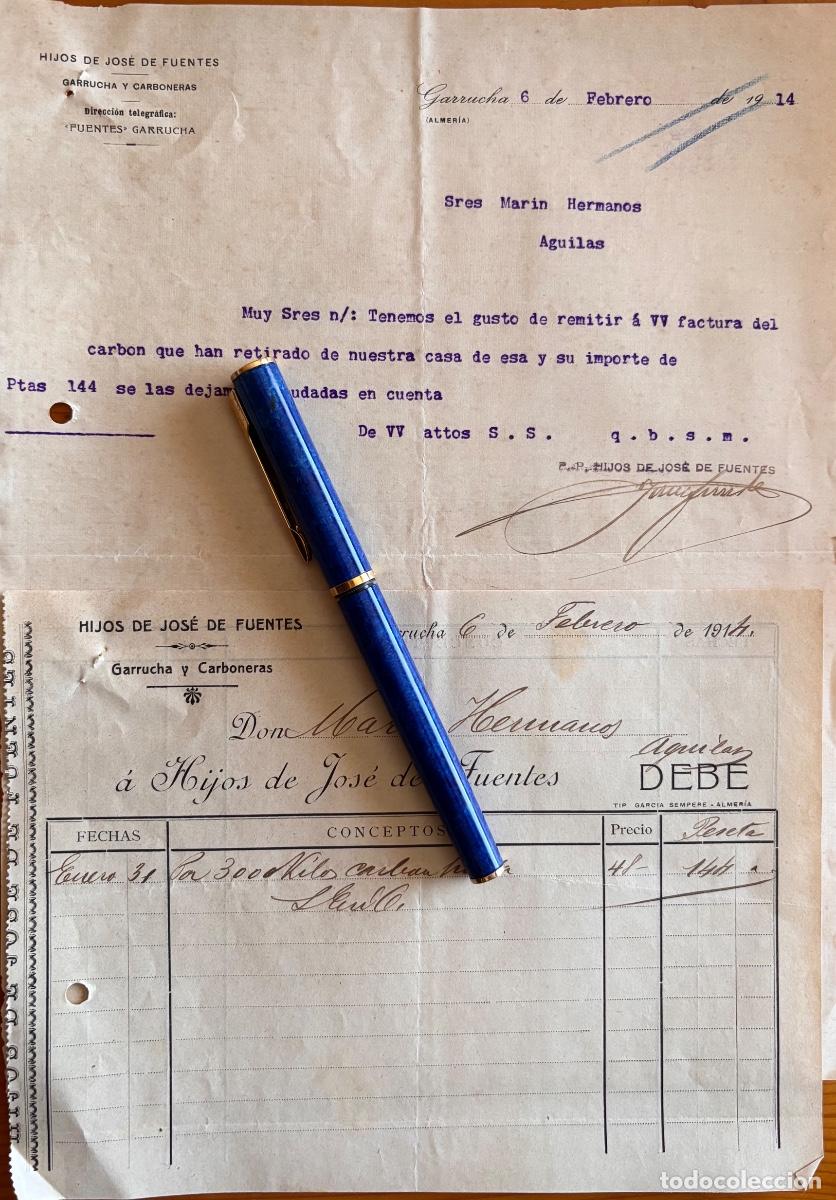 HIJOS DE JOSÉ DE FUENTES
GARRUCHA Y CARBONERAS
Dirección telegráfica:
"FUENTES" GARRUCHA
Garrucha 6 de Febrero de 19 14
(ALMERÍA)
Sres Marin Hermanos
Aguilas
Muy Sres n/: Tenemos el gusto de remitir á VV factura del
carbon que han retirado de nuestra casa de esa y su importe de
Ptas 144 se las dejam udadas en cuenta
De VV attos S.S. q.b.s.m.
P.P. HIJOS DE JOSÉ DE FUENTES
HIJOS DE JOSÉ DE FUENTES
Garrucha y Carboneras
rrucha 6 de Febrero de 1914.
Don Mar Hermanos
Aguilas
á Hijos de José de Fuentes DEBE
TIP GARCIA SEMPERE - ALMERÍA
FECHAS CONCEPTOS Precio Peseta
Enero 31 Por 3000 Kilos carbon 48 144
todocoleccion